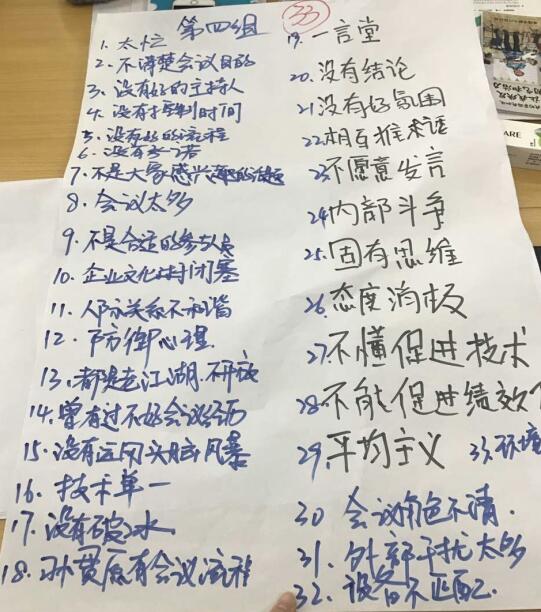 第四组
33
1. 太忙
2. 不清楚会议目的
3. 没有好的主持人
4. 没有时间
5. 没有好的流程
6. 没有承诺
7. 不是大家感兴趣的话题
8. 会议太多
9. 不是合适的参与人员
10. 企业文化封闭
11. 人际关系不和谐
12. 防御心理
13. 都是老江湖.不开放
14. 曾有过不好会议经历
15. 没有运用头脑风暴
16. 技术单一
17. 没有破冰
18. 原有会议流程
19. 一言堂
20. 没有结论
21. 没有好氛围
22. 相互推
23. 不愿意发言
24. 内部斗争
25. 固有思维
26. 态度消极
27. 不懂促进技术
28. 不能促进绩效
29. 平均主义
33. 环境
30 会议角色不清.
31. 外部干扰太多
32. 设备不匹配.